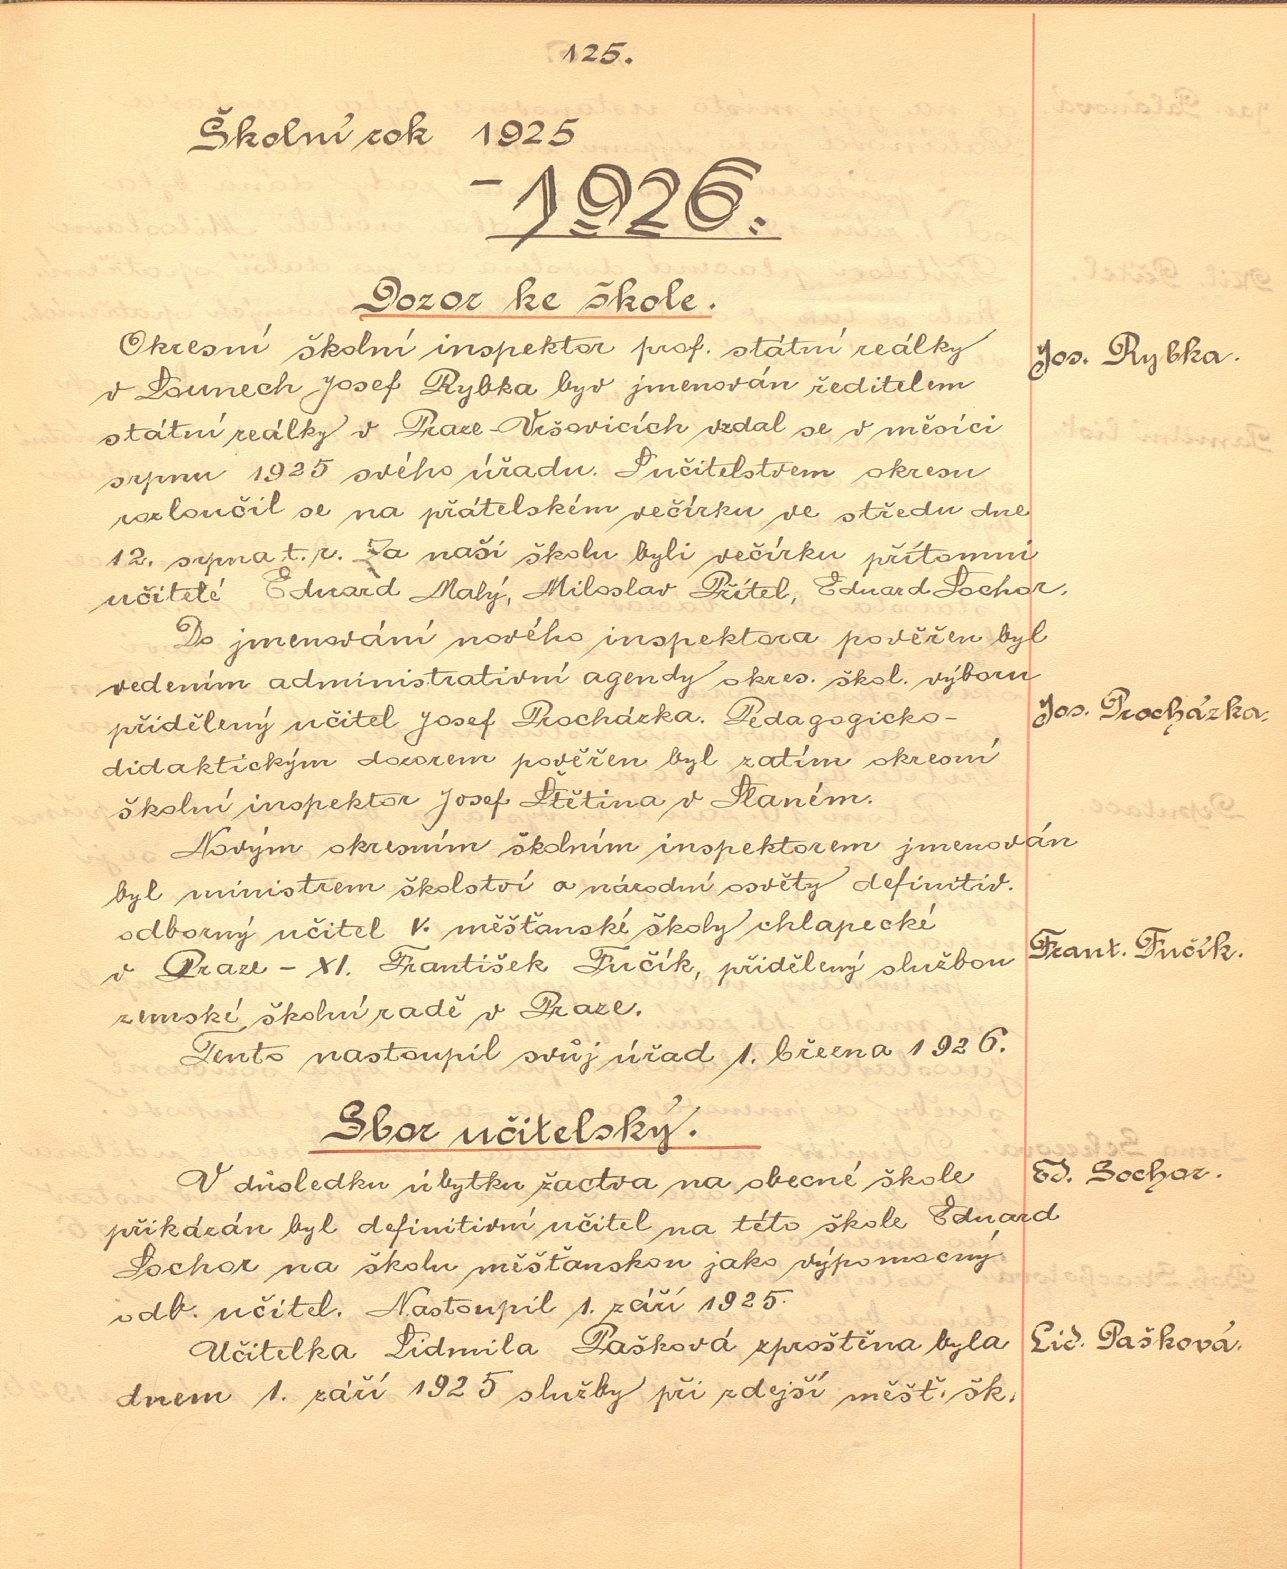 125.
Školní rok 1925
–1926.
Dozor ke škole.
Okresní školní inspektor prof. státní reálky
v Lounech Josef Rybka byv jmenován ředitelem
státní reálky v Praze-Vršovicích vzdal se v měsíci
srpnu 1925 svého úřadu. S učitelstvem okresu
rozloučil se na přátelském večírku ve středu dne
12. srpna t. r. Za naši školu byli večírku přítomni
učitelé Eduard Malý, Miloslav Přítel, Eduard Sochor.
Do jmenování nového inspektora pověřen byl
vedením administrativní agendy okres. škol. výboru
přidělený učitel Josef Procházka. Pedagogicko-
didaktickým dozorem pověřen byl zatím okresní
školní inspektor Josef Štětina v Slaném.
Novým okresním školním inspektorem jmenován
byl ministrem školství a národní osvěty definitiv.
odborný učitel V. měšťanské školy chlapecké
v Praze – XI. František Fučík, přidělený službou
zemské školní radě v Praze.
Tento nastoupil svůj úřad 1. března 1926.
Sbor učitelský.
V důsledku úbytku žactva na obecné škole
přikázán byl definitivní učitel na této škole Eduard
Sochor na školu měšťanskou jako výpomocný
odb. učitel. Nastoupil 1. září 1925.
Učitelka Lidmila Pašková zproštěna byla
dnem 1. září 1925 služby při zdejší měšť. šk.
Jos. Rybka.
Jos. Procházka.
Frant. Fučík.
Ed. Sochor.
Lid. Pašková.